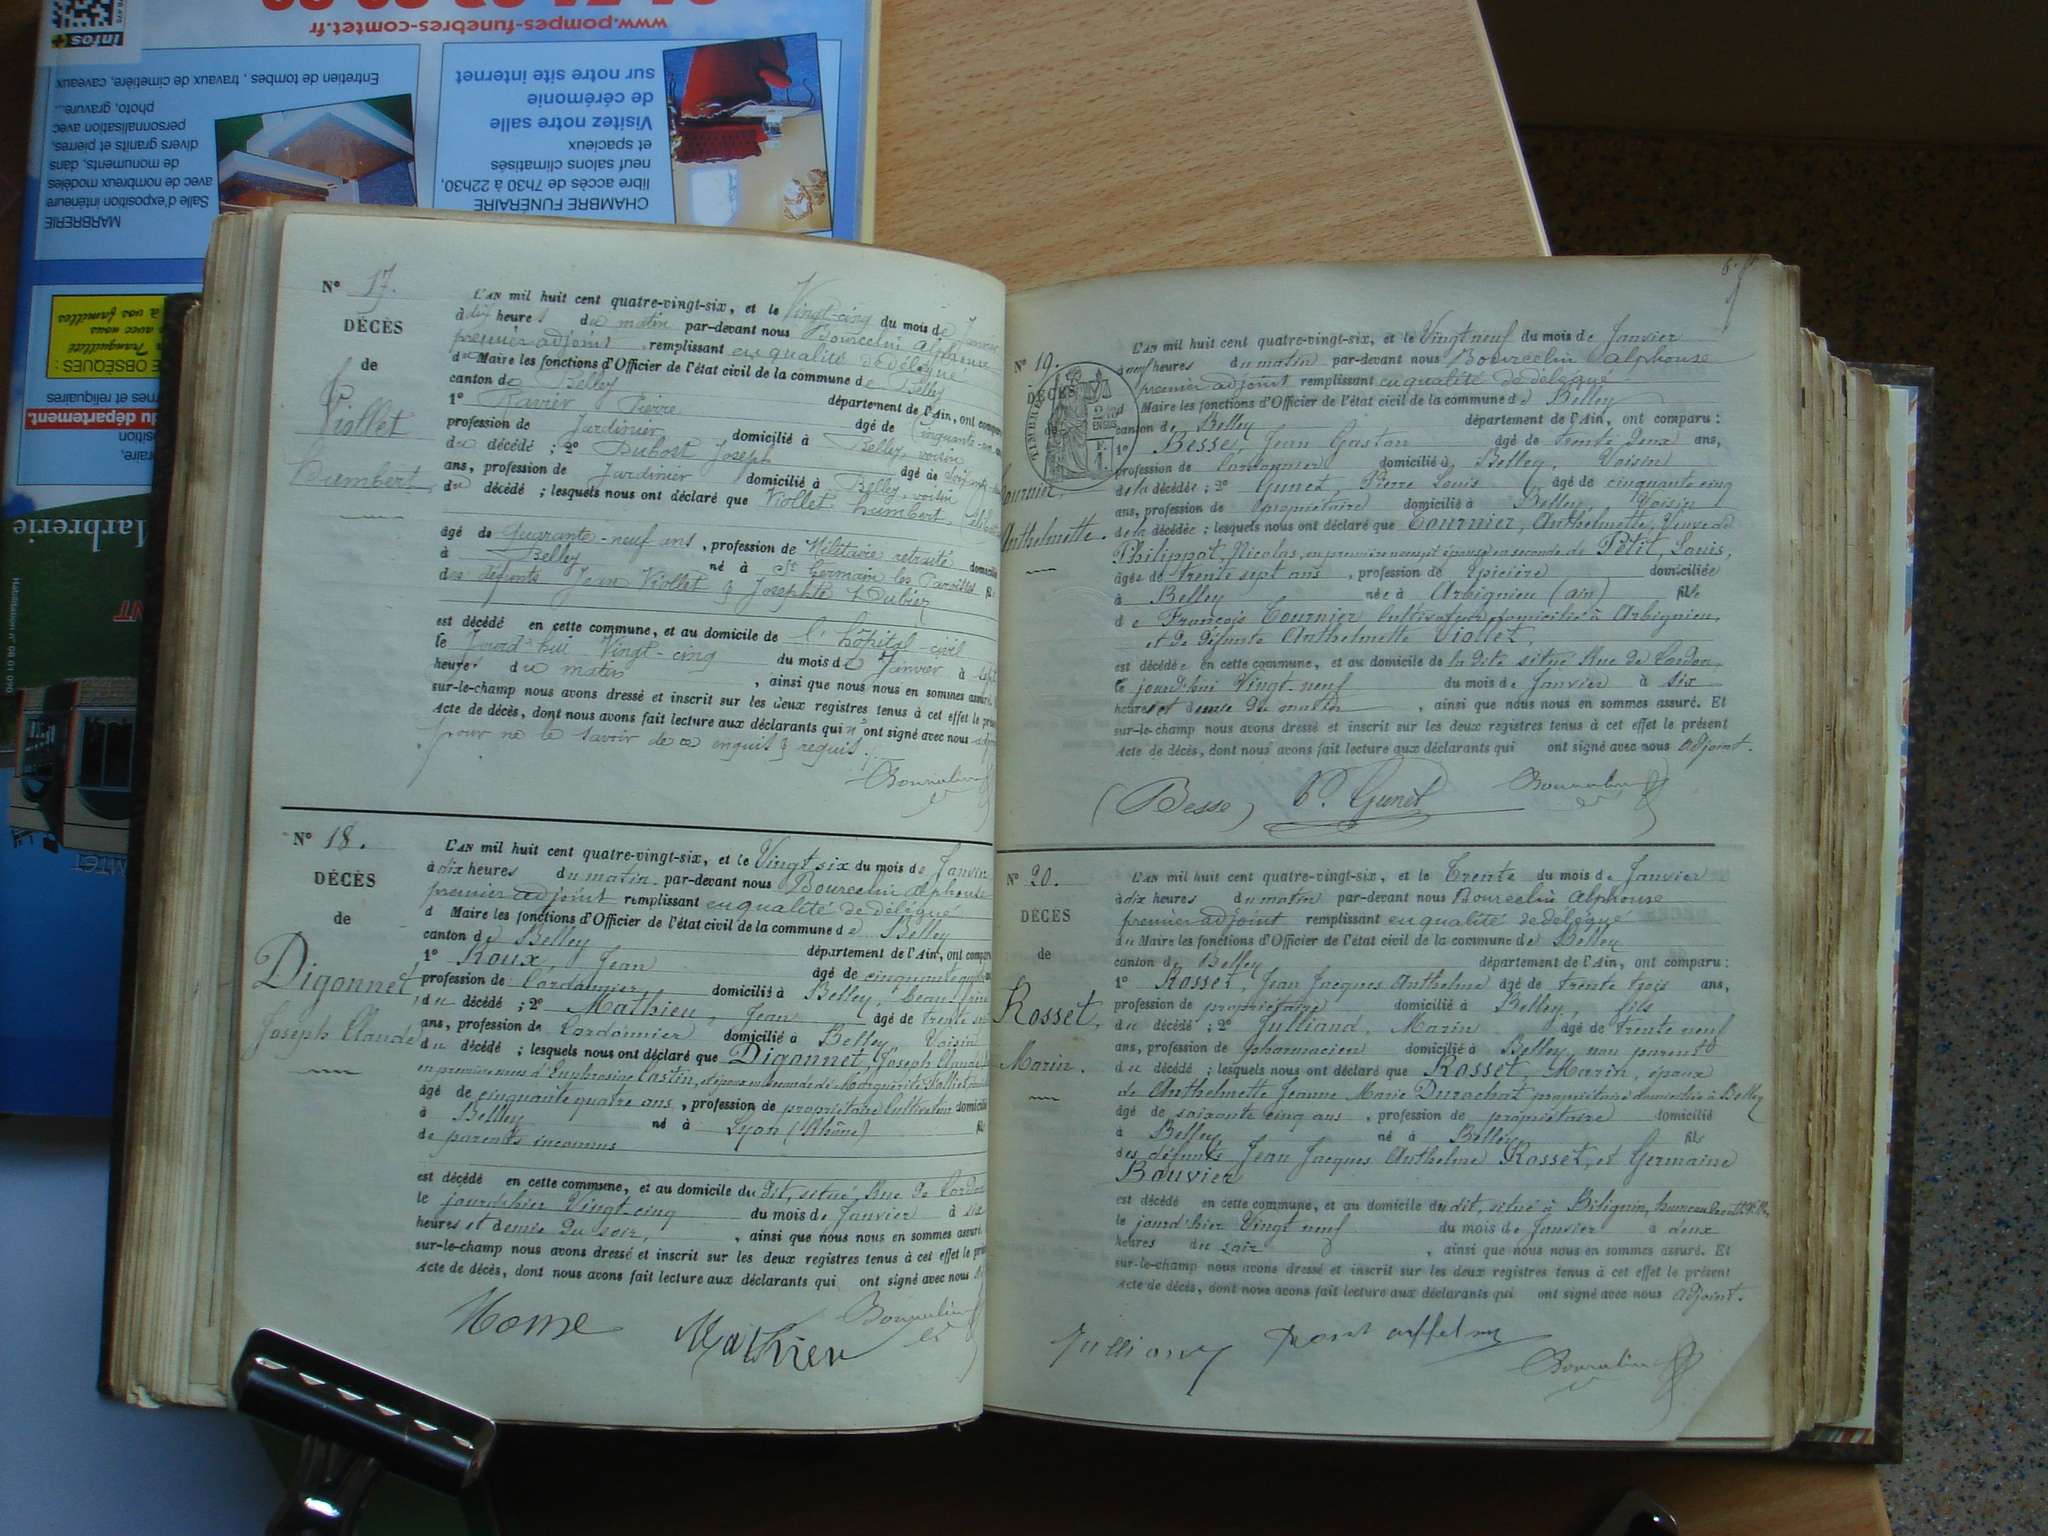 www.pompes-funebres-comtet.fr
infos
Entretien de tombes, travaux de cimetière, caveaux
photo, gravure...
personnalisation avec
divers granits et pierres,
de monuments, dans
avec de nombreux modèles
Salle d'exposition intérieure
MARBRERIE
sur notre site internet
de cérémonie
Visitez notre salle
et spacieux
neuf salons climatisés
libre accès de 7h30 à 22h30,
CHAMBRE FUNÉRAIRE
OBSÈQUES :
du département.
Marbrerie
N° 17.
DÉCÈS
de
Viollet
Humbert
L'AN mil huit cent quatre-vingt-six, et le Vingt-cinq du mois de Janvier
à dix heures du matin par-devant nous Bourcelin Alphonse
premier adjoint remplissant en qualité de délégué
du Maire les fonctions d'Officier de l'état civil de la commune de Belley
canton de Belley département de l'Ain, ont comparu
1° Ravier Pierre âgé de Cinquante
profession de Jardinier domicilié à Belley, voisin
du décédé ; 2° Dubost Joseph âgé de
ans, profession de Jardinier domicilié à Belley, voisin
du décédé ; lesquels nous ont déclaré que Viollet Humbert,
âgé de Quarante-neuf ans, profession de Militaire retraité domicilié
à Belley né à St Germain les Paroisses fils
des défunts Jean Viollet & Josephte
est décédé en cette commune, et au domicile de l'hôpital civil
le Jourd'hui Vingt-cinq du mois de Janvier à sept
heures du matin, ainsi que nous nous en sommes assuré.
sur-le-champ nous avons dressé et inscrit sur les deux registres tenus à cet effet le présent
acte de décès, dont nous avons fait lecture aux déclarants qui n'ont signé avec nous adjoint
pour ne le savoir de ce enquis & requis.
Bourcelin
N° 18.
DÉCÈS
de
Digonnet,
Joseph Claude
L'AN mil huit cent quatre-vingt-six, et le Vingt six du mois de Janvier
à dix heures du matin par-devant nous Bourcelin Alphonse
premier adjoint remplissant en qualité de délégué
d Maire les fonctions d'Officier de l'état civil de la commune de Belley
canton de Belley département de l'Ain, ont comparu
1° Roux, Jean âgé de cinquante
profession de Cordonnier domicilié à Belley, beau frère
du décédé ; 2° Mathieu, Jean âgé de trente
ans, profession de Cordonnier domicilié à Belley Voisin
du décédé ; lesquels nous ont déclaré que Digonnet, Joseph Claude,
en premières noces d'Euphrosine Castin, époux en seconde de Marguerite
âgé de cinquante quatre ans, profession de propriétaire Cultivateur domicilié
à Belley né à Lyon (Rhône) fils
de parents inconnus
est décédé en cette commune, et au domicile du dit, situé Rue de Cordon
le jourd'hier Vingt cinq du mois de Janvier à six
heures et demie du soir, ainsi que nous nous en sommes assuré.
sur-le-champ nous avons dressé et inscrit sur les deux registres tenus à cet effet le présent
acte de décès, dont nous avons fait lecture aux déclarants qui ont signé avec nous
Mathieu
Bourcelin
N° 19.
DÉCÈS
Tournier,
Anthelmette.
TIMBRE
L'AN mil huit cent quatre-vingt-six, et le Vingt neuf du mois de Janvier
à neuf heures du matin par-devant nous Bourcelin Alphonse
premier adjoint remplissant en qualité de délégué
Maire les fonctions d'Officier de l'état civil de la commune de Belley
canton de Belley département de l'Ain, ont comparu :
1° Besse, Jean Gaston âgé de trente deux ans,
profession de Cordonnier domicilié à Belley, Voisin
de la décédée ; 2° Gunet, Pierre Louis âgé de cinquante cinq
ans, profession de propriétaire domicilié à Belley, Voisin
de la décédée ; lesquels nous ont déclaré que Tournier, Anthelmette, Veuve de
Philippot, Nicolas, en premières noces et épouse en seconde de Petit, Louis,
âgée de trente sept ans, profession de épicière domiciliée
à Belley née à Arbignieu (ain) fille
de François Tournier Cultivateur domicilié à Arbignieu,
et de défunte Anthelmette Viollet,
est décédée en cette commune, et au domicile de la dite situé Rue de Cordon,
le jourd'hui Vingt-neuf du mois de Janvier à six
heures et demie du matin, ainsi que nous nous en sommes assuré. Et
sur-le-champ nous avons dressé et inscrit sur les deux registres tenus à cet effet le présent
acte de décès, dont nous avons fait lecture aux déclarants qui ont signé avec nous adjoint.
(Besse) P. Gunet Bourcelin
N° 20.
DÉCÈS
de
Rosset,
Marin.
L'AN mil huit cent quatre-vingt-six, et le Trente du mois de Janvier
à dix heures du matin par-devant nous Bourcelin Alphonse
premier adjoint remplissant en qualité de délégué
du Maire les fonctions d'Officier de l'état civil de la commune de Belley
canton de Belley département de l'Ain, ont comparu :
1° Rosset, Jean Jacques Anthelme âgé de trente trois ans,
profession de propriétaire domicilié à Belley, fils
du décédé ; 2° Julliand, Marin âgé de trente neuf
ans, profession de pharmacien domicilié à Belley, non parent
du décédé ; lesquels nous ont déclaré que Rosset, Marin, époux
de Anthelmette Jeanne Marie Durochat propriétaire domiciliée à Belley
âgé de soixante cinq ans, profession de propriétaire domicilié
à Belley né à Belley fils
des défunts Jean Jacques Anthelme Rosset, et Germaine
Bouvier
est décédé en cette commune, et au domicile du dit, situé à Bilignin,
le jourd'hier Vingt neuf du mois de Janvier à deux
heures du soir, ainsi que nous nous en sommes assuré. Et
sur-le-champ nous avons dressé et inscrit sur les deux registres tenus à cet effet le présent
acte de décès, dont nous avons fait lecture aux déclarants qui ont signé avec nous adjoint.
Julliand
Bourcelin